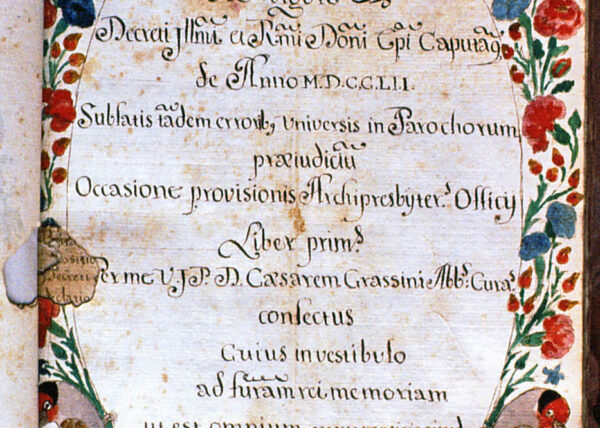 Decreti Illm̃i et Rm̃i Domĩ Epĩ Caputaq̃
de Anno M.D.CCLII.
Sublatis tãdem erroribꝫ universis in Parochorum
præiudiciũ
Occasione provisionis Archipresbyterˢ Officij
Liber primꝰ
Per me V.J.P. D. Cæsarem Grassini Abbˢ: Curaˢ
confectus
Cuius in vestibulo
ad futuram rei memoriam
ut est omnium